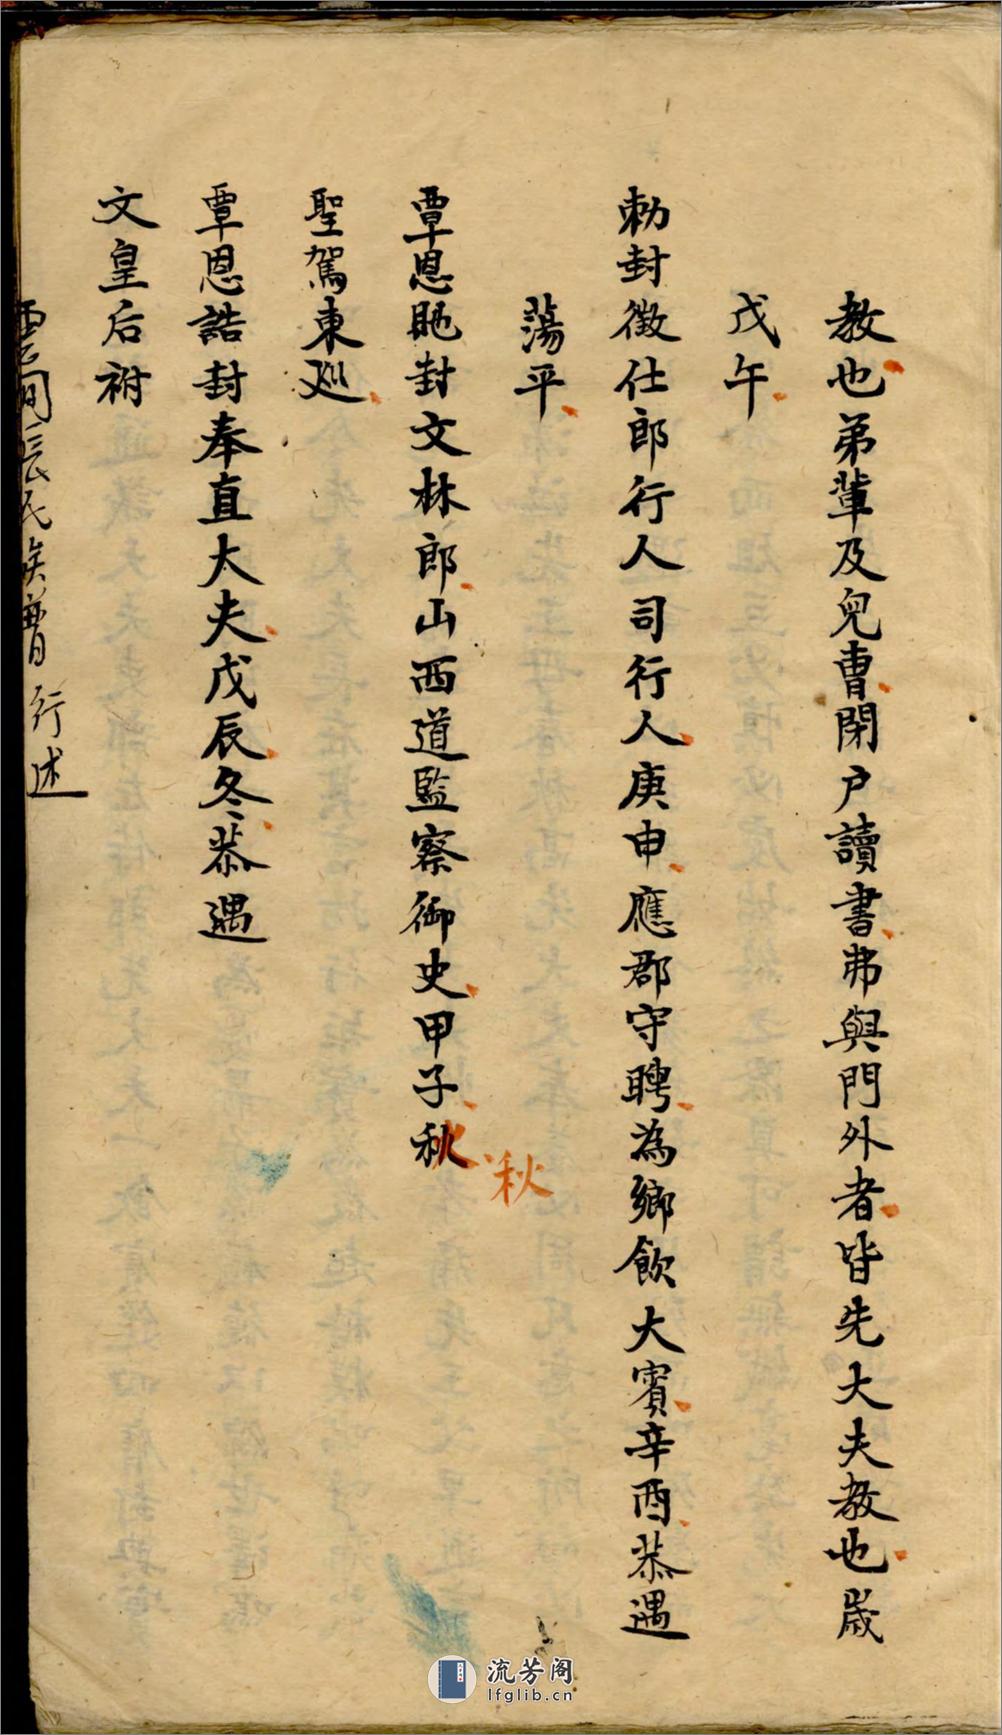 教也弟輩及兒曹閉户讀書弗與門外者皆先大夫教也歲
戊午
勅封徵仕郎行人司行人庚申應郡守聘為鄉飲大賓辛酉恭遇
蕩平
覃恩貤封文林郎山西道監察御史甲子秋
秋
聖駕東巡
覃恩誥封奉直大夫戊辰冬恭遇
文皇后祔
氏族譜行述
流芳阁
lfglib.cn